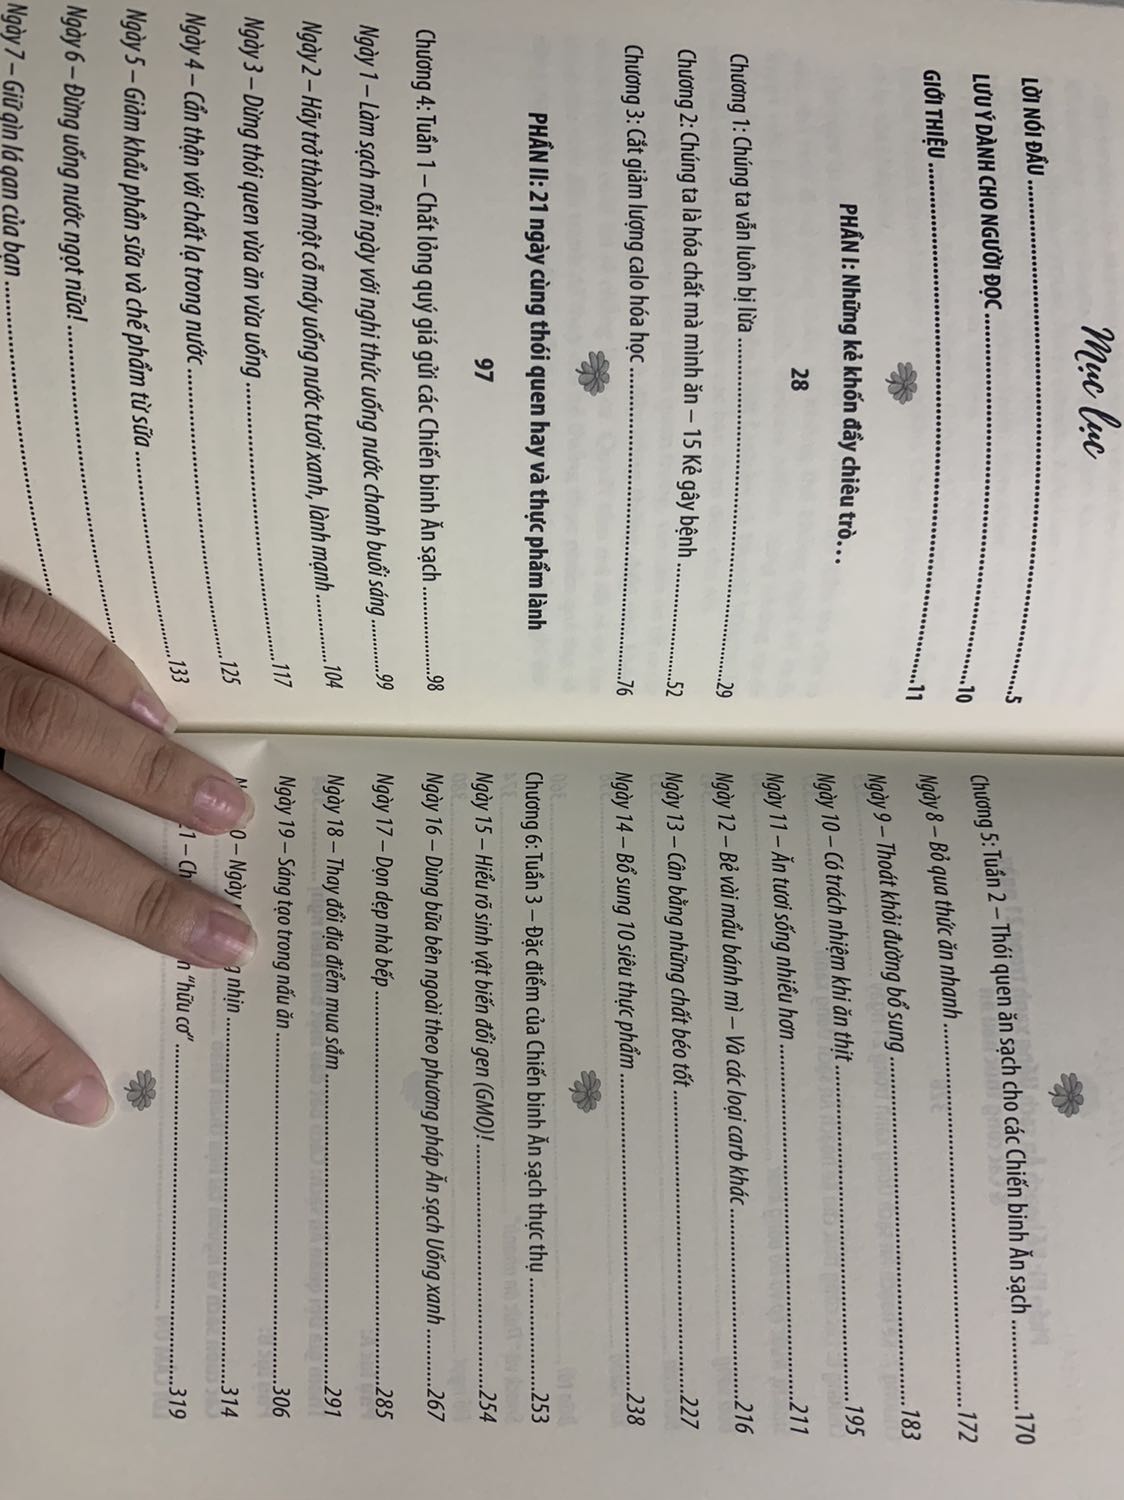 Mục lục
LỜI NÓI ĐẦU ........ 5
LƯU Ý DÀNH CHO NGƯỜI ĐỌC ........ 10
GIỚI THIỆU ........ 11
PHẦN I: Những kẻ khốn đầy chiêu trò...
28
Chương 1: Chúng ta vẫn luôn bị lừa ........ 29
Chương 2: Chúng ta là hóa chất mà mình ăn – 15 Kẻ gây bệnh ........ 52
Chương 3: Cắt giảm lượng calo hóa học ........ 76
PHẦN II: 21 ngày cùng thói quen hay và thực phẩm lành
97
Chương 4: Tuần 1 – Chất lỏng quý giá gửi các Chiến binh Ăn sạch ........ 98
Ngày 1 – Làm sạch mỗi ngày với nghi thức uống nước chanh buổi sáng ........ 99
Ngày 2 – Hãy trở thành một cỗ máy uống nước tươi xanh, lành mạnh ........ 104
Ngày 3 – Dừng thói quen vừa ăn vừa uống ........ 117
Ngày 4 – Cẩn thận với chất lạ trong nước ........ 125
Ngày 5 – Giảm khẩu phần sữa và chế phẩm từ sữa ........ 133
Ngày 6 – Đừng uống nước ngọt nữa! ........
Ngày 7 – Giữ gìn lá gan của bạn ........
Chương 5: Tuần 2 – Thói quen ăn sạch cho các Chiến binh Ăn sạch ........ 170
Ngày 8 – Bỏ qua thức ăn nhanh ........ 172
Ngày 9 – Thoát khỏi đường bổ sung ........ 183
Ngày 10 – Có trách nhiệm khi ăn thịt ........ 195
Ngày 11 – Ăn tươi sống nhiều hơn ........ 211
Ngày 12 – Bẻ vài mẩu bánh mì – Và các loại carb khác ........ 216
Ngày 13 – Cân bằng những chất béo tốt ........ 227
Ngày 14 – Bổ sung 10 siêu thực phẩm ........ 238
Chương 6: Tuần 3 – Đặc điểm của Chiến binh Ăn sạch thực thụ ........ 253
Ngày 15 – Hiểu rõ sinh vật biến đổi gen (GMO)! ........ 254
Ngày 16 – Dùng bữa bên ngoài theo phương pháp Ăn sạch Uống xanh ........ 267
Ngày 17 – Dọn dẹp nhà bếp ........ 285
Ngày 18 – Thay đổi địa điểm mua sắm ........ 291
Ngày 19 – Sáng tạo trong nấu ăn ........ 306
0 – Ngày nhịn ........ 314
21 – "hữu cơ" ........ 319